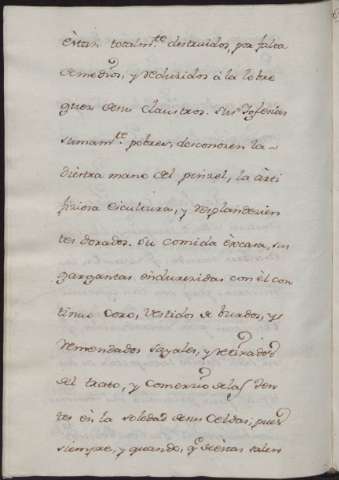 èstan totalm.te destruidos, por falta
de medios, y reducidos à la lobre
guez de sus claustros. sus Iglesias
sumam.te pobres, desconocen la
diestra mano del pinzel, la arti
ficiosa escultura, y resplandecien
tes dorados. su comida èscasa, sus
gargantas endurecidas con èl con
tinuo coro, vestidos de burdos, y
remendados sayales, y retirados
del trato, y comercio de las Gen
tes en la soledad de sus Celdas, pues
siempre, y quando, q.e dièstas salen